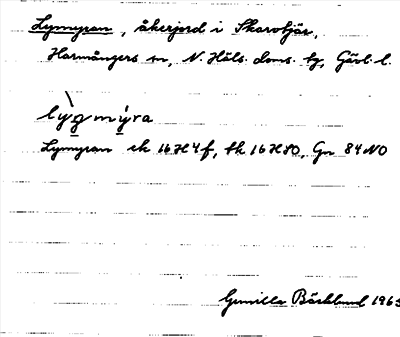 Lymyran, åkerjord i Skarvtjär,
Harmångers sn, N. Häls. doms. tg, Gävl. l.
lỳgmýra
Lymyran ek 16H4f, tk 16H80, Gn 84NO
Gunilla Bäcklund 1965